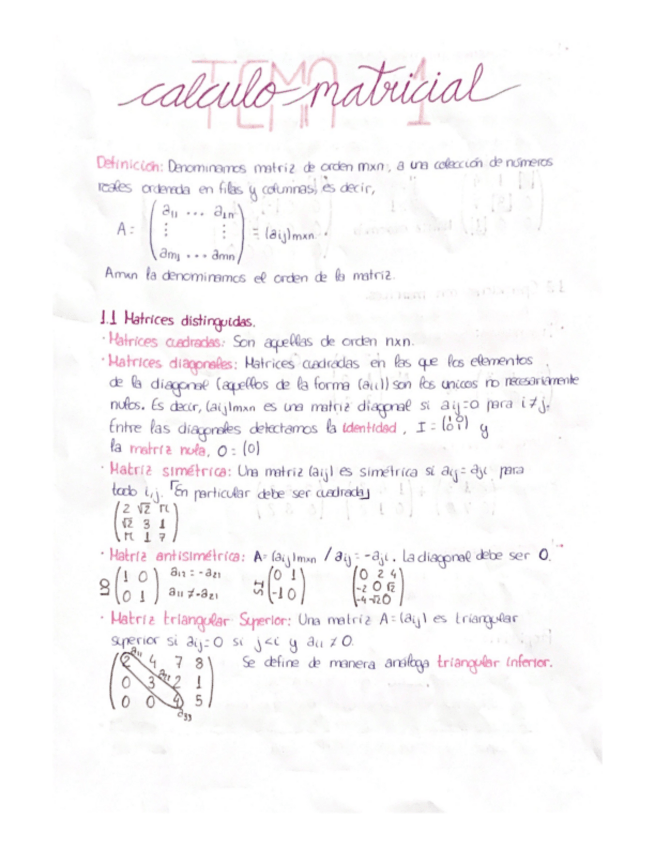 TEMA 1
calculo matricial
Definición: Denominamos matriz de orden mxn, a una colección de números
reales ordenada en filas y columnas, es decir,
A = ( a11 ... a1n ; ⋮ ⋮ ; am1 ... amn ) = (aij)mxn.
Amxn la denominamos el orden de la matriz.
1.1 Matrices distinguidas.
· Matrices cuadradas: Son aquellas de orden nxn.
· Matrices diagonales: Matrices cuadradas en las que los elementos
de la diagonal (aquellos de la forma (aii)) son los unicos no necesariamente
nulos. Es decir, (aij)mxn es una matriz diagonal si aij=0 para i≠j.
Entre las diagonales detectamos la identidad, I = (1 0 ; 0 1) y
la matriz nula, O = (0)
· Matriz simétrica: Una matriz (aij) es simétrica si aij = aji para
todo i,j. ⌈En particular debe ser cuadrada⌋
( 2 √2 π ; √2 3 1 ; π 1 7 )
· Matriz antisimétrica: A=(aij)mxn / aij = -aji. La diagonal debe ser 0.
NO ( 1 0 ; 0 1 ) a12 = -a21 a11 ≠ -a21 SI ( 0 1 ; -1 0 ) ( 0 2 4 ; -2 0 √2 ; -4 -√2 0 )
· Matriz triangular Superior: Una matriz A=(aij) es triangular
superior si aij=0 si j<i y aii ≠ 0.
( 2 4 7 8 ; 0 3 2 1 ; 0 0 4 5 ) a11 a22 a33 Se define de manera análoga triangular inferior.